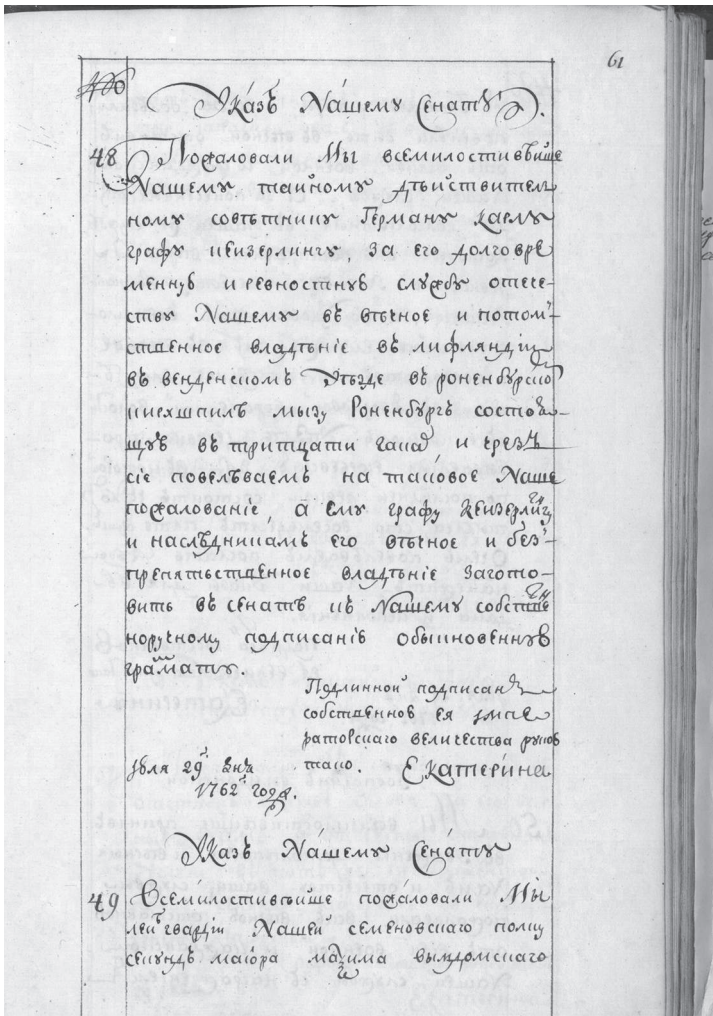 61
Указъ Нашему Сенату.
48 Пожаловали Мы всемилостивѣише
Нашему таиному дѣиствител
ному совѣтнику Герману Карлу
графу кеизерлингу, за его долговре
менную и ревностную службу отече-
ству Нашему въ вѣчное и потом-
ственное владѣніе въ лифляндіи
въ венденскомъ Уѣзде въ роненбурско
кирхшпилѣ мызу Роненбургъ состоя-
щую въ тритцати гаках и чрезъ
сіе повелѣваемъ на таковое Наше
пожалованіе а ему графу Кеизерлингу
и наслѣдникамъ его вѣчное и без-
препятственное владѣніе загото-
вить въ сенатѣ къ Нашему собстве
норучному подписанію обыкновенную
грамматы.
Подлинной подписанъ
собственною ея импе
раторскаго величества рукою
тако. Екатерина
Іюля 29г дня
1762г году.
Указъ Нашему Сенату
49 Всемилостивѣише пожаловали Мы
леибгвардіи Нашеи семеновскаго полку
секундъ маіора максима вындомскаго